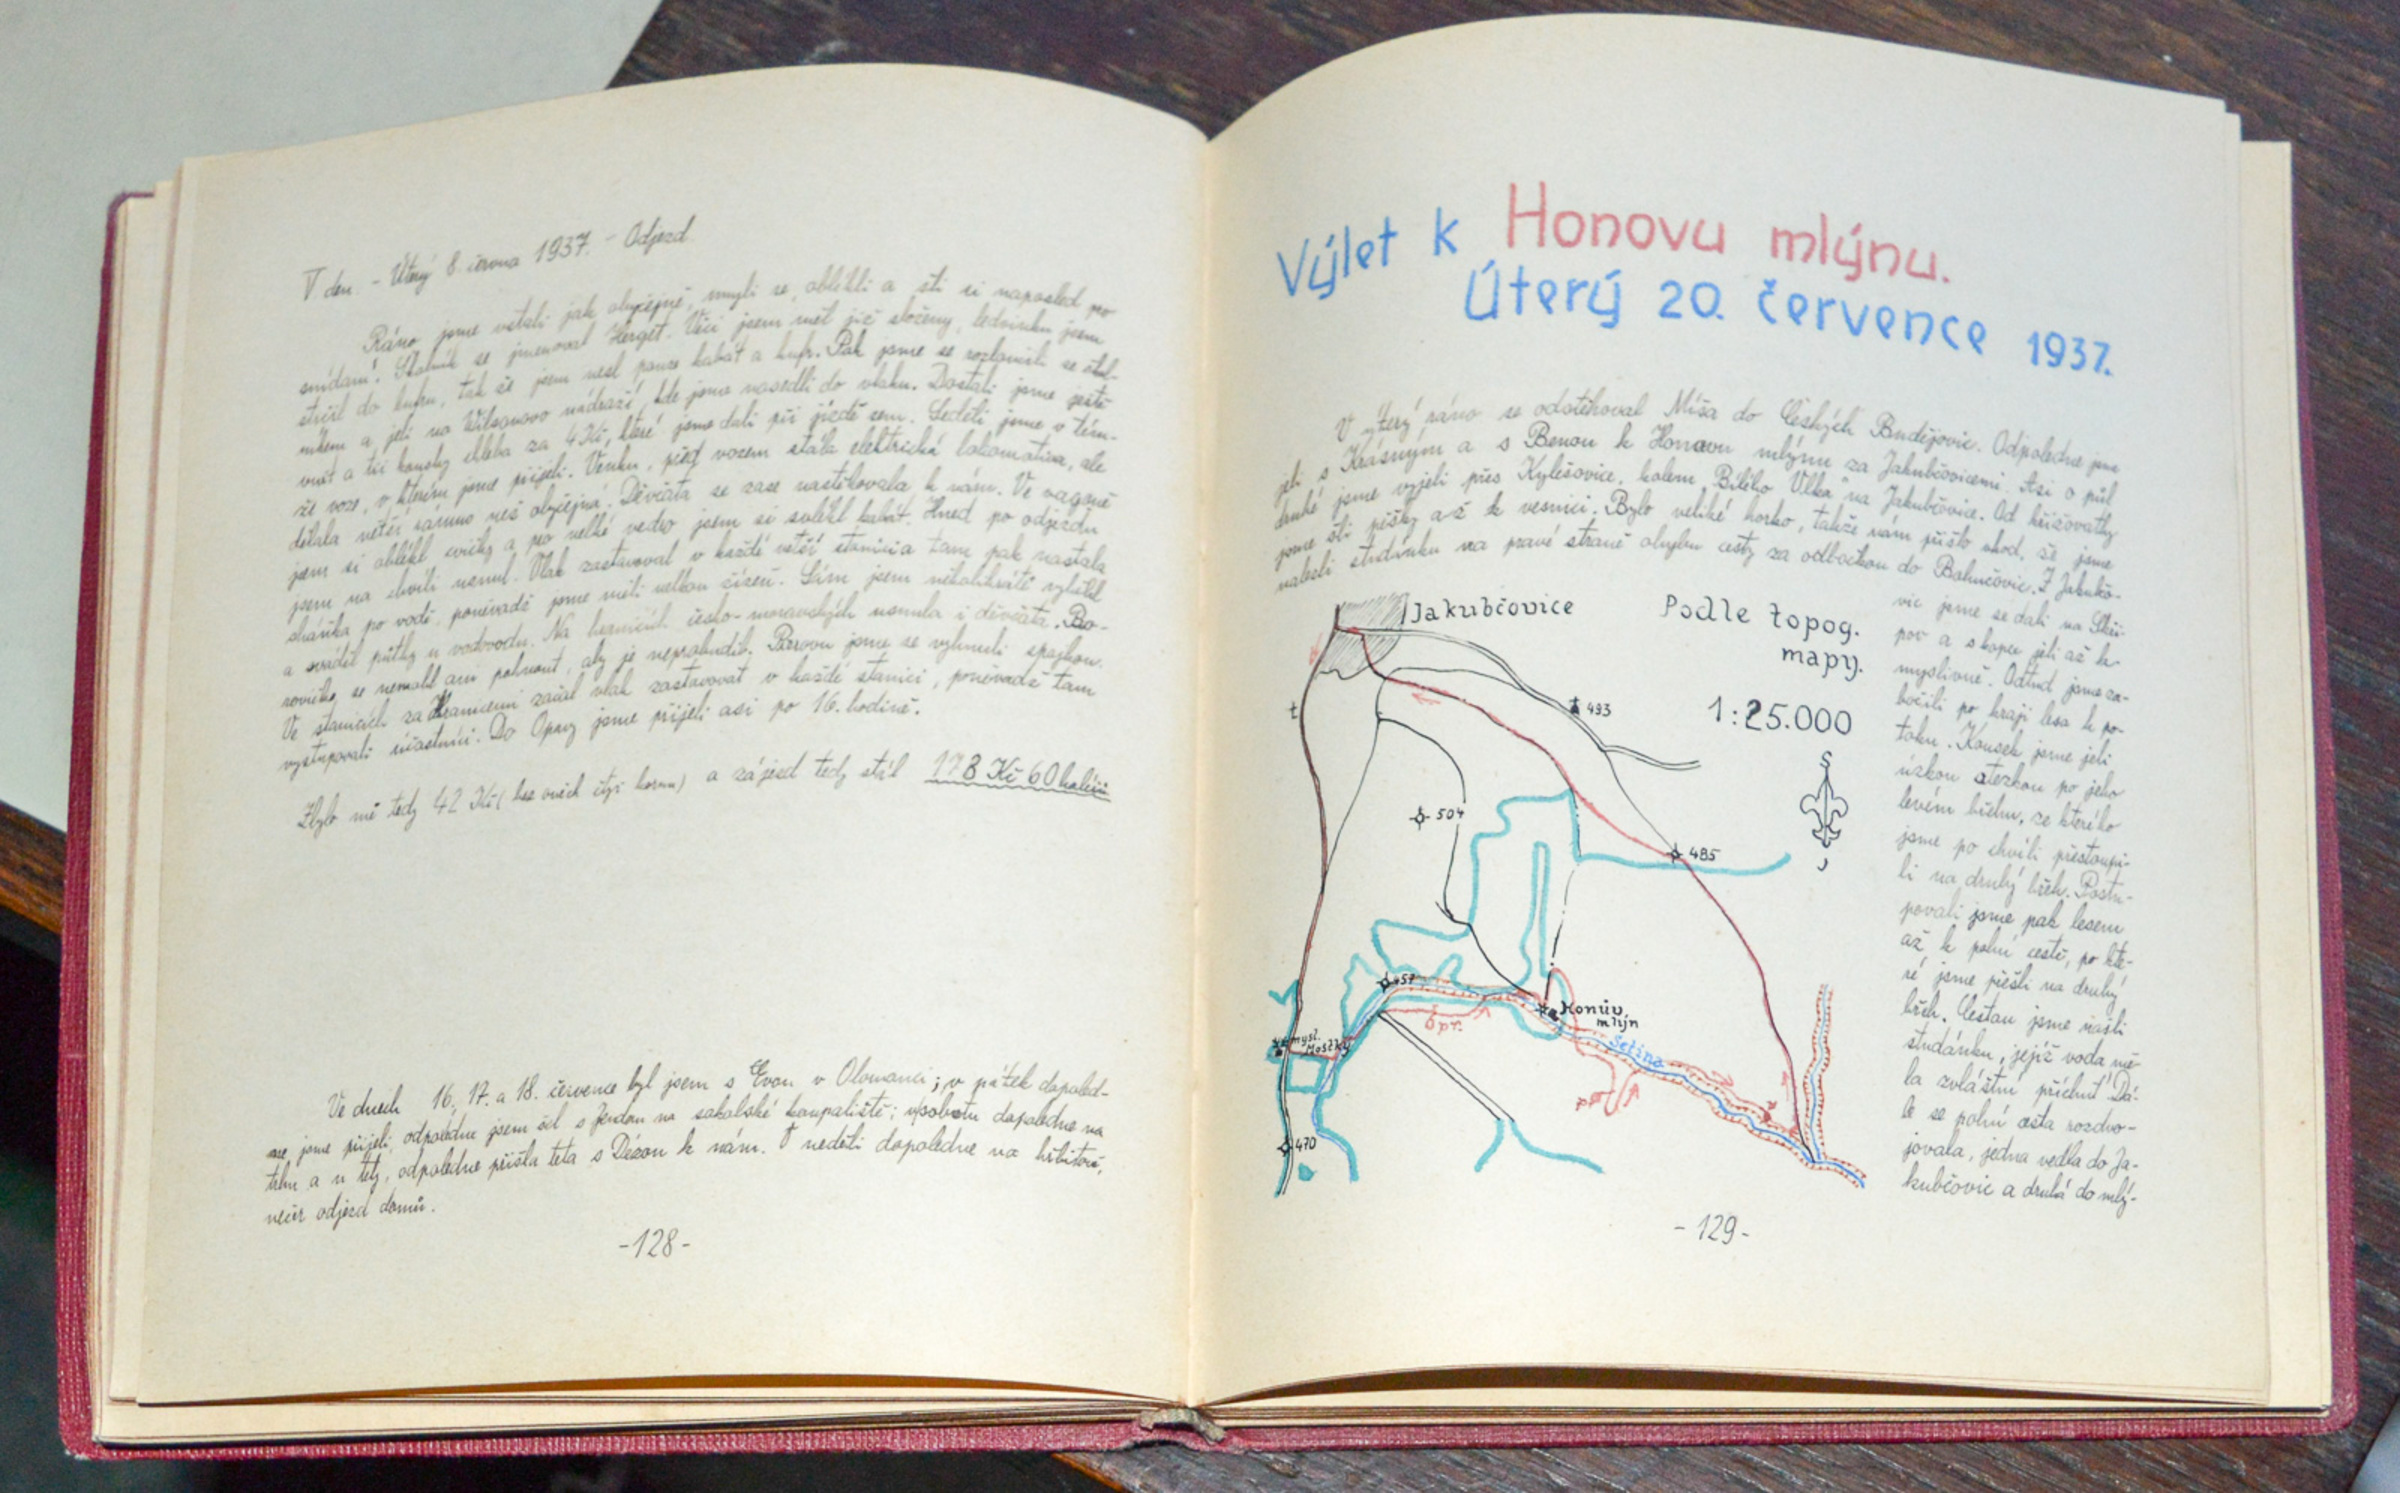 V den. - Úterý 8. června 1937. - Odjezd.
Ráno jsme vstali jak obyčejně, umyli se, oblékli a šli si naposled po
snídani. Stolník se jmenoval Herget. Věci jsem měl již složeny, ledvinku jsem
strčil do kufru, tak že jsem nesl pouze kabát a kufr. Pak jsme se rozloučili se
a jeli na Wilsonovo nádraží, kde jsme nasedli do vlaku. Dostali jsme ještě
a tři kousky chleba za 4 Kč, které jsme dali při jízdě sem. Seděli jsme v tém-
že voze, v kterém jsme přijeli. Venku, před vozem stála elektrická lokomotiva, ale
dělala větší rámus než obyčejná. Děvčata se zase nastěhovala k nám. Ve vagoně
jsem si oblékl cvičky a pro velké vedro jsem si svlékl kabát. Hned po odjezdu
jsem na chvíli usnul. Vlak zastavoval v každé větší stanici a tam pak nastala
sháňka po vodě, poněvadž jsme měli velkou žízeň. Sám jsem několikráte vyběhl
a sváděl půtky u vodovodu. Na hranicích česko-moravských usnula i děvčata. Bo-
rovička se nemohl ani pohnout, aby je neprobudil. Přerovu jsme se vyhnuli spojkou.
Ve stanicích za Hranicemi začal vlak zastavovat v každé stanici, poněvadž tam
vystupovali účastníci. Do Opavy jsme přijeli asi po 16. hodině.
Zbylo mě tedy 42 Kč (bez oněch čtyř korun) a zájezd tedy stál 178 Kč 60 haléřů
Ve dnech 16., 17. a 18. července byl jsem s Evou v Olomouci; v pátek dopoled-
ne jsme přijeli, odpoledne jsem šel s Jendou na sokolské koupaliště; v sobotu dopoledne na
trhu a u tety, odpoledne přišla teta s Dézou k nám. V neděli dopoledne na hřbitově,
večer odjezd domů.
-128-
Výlet k Honovu mlýnu.
Úterý 20. července 1937.
V úterý ráno se odstěhoval Míša do Českých Budějovic. Odpoledne jsme
jeli s Krásným a s Benou k Honovu mlýnu za Jakubčovicemi. Asi o půl
druhé jsme vyjeli přes Kylešovice, kolem „Bílého Vlka“ na Jakubčovice. Od křižovatky
jsme šli pěšky až k vesnici. Bylo veliké horko, takže nám přišlo vhod, že jsme
nalezli studánku na pravé straně ohybu cesty za odbočkou do Bohučovic. Z Jakubčo-
vic jsme se dali na Skři-
pov a s kopce jeli až k
myslivně. Odtud jsme za-
bočili po kraji lesa k po-
toku. Kousek jsme jeli
úzkou stezkou po jeho
levém břehu, ze kterého
jsme po chvíli přestoupi-
li na druhý břeh. Postu-
povali jsme pak lesem
až k polní cestě, po kte-
ré jsme přešli na druhý
břeh. Cestou jsme našli
studánku, jejíž voda mě-
la zvláštní příchuť. Dá-
le se polní cesta rozdvo-
jovala, jedna vedla do Ja-
kubčovic a druhá do mlý-
Jakubčovice
Podle topog.
mapy.
1:25.000
S
J
493
504
485
457
Honův
mlýn
Setina
pr.
pr.
mysl.
Mostky
470
-129-